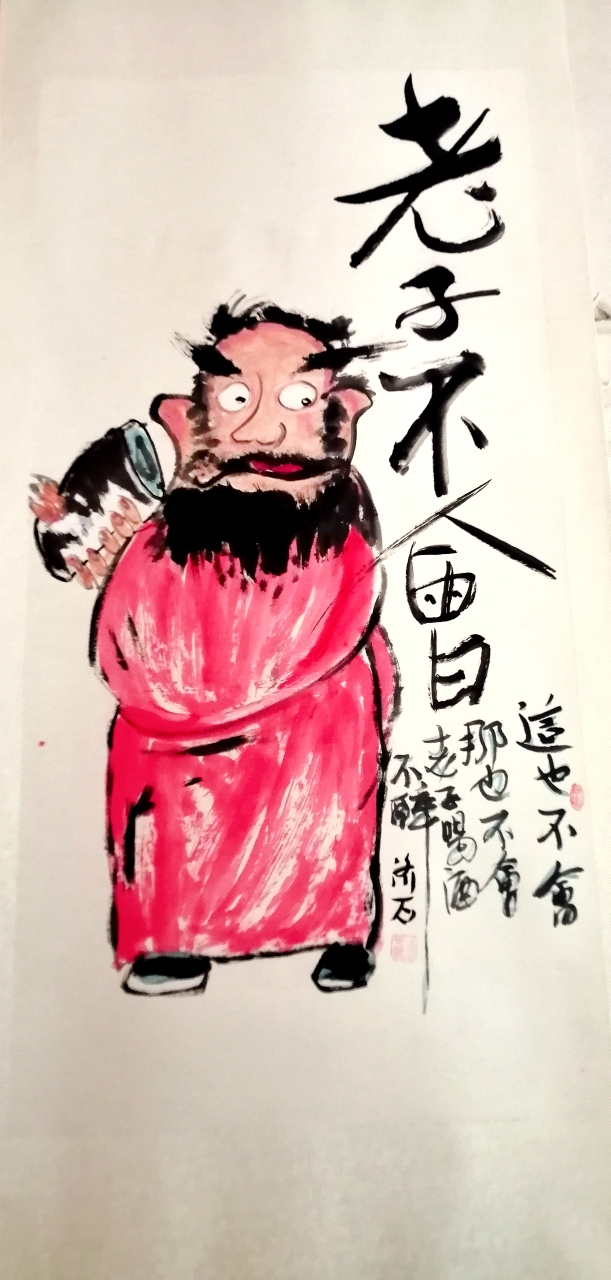 老子不會
這也不會
那也不會
老子喝酒
不醉
济石